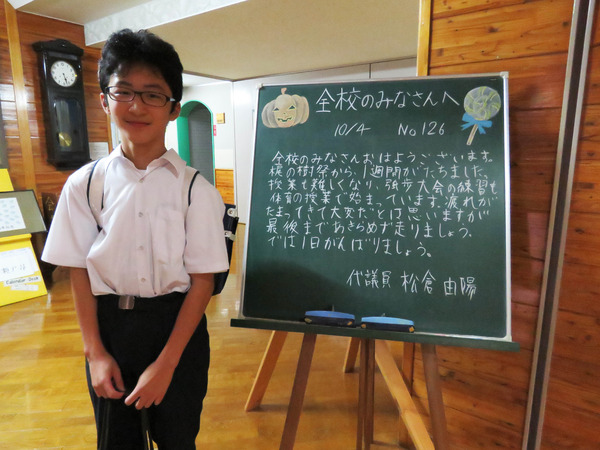 全校のみなさんへ
10/4 No 126
全校のみなさんおはようございます。
樹祭から、1週間がたちました。
授業も難しくなり、強歩大会の練習も
体育の授業で始まっています。疲れが
たまってきて大変だとは思いますが
最後まであきらめず走りましょう。
では1日がんばりましょう。
代議員 松倉 由陽